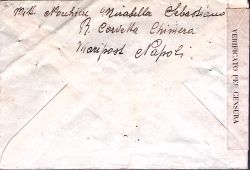 Mitt. Nocchiere Mirabella Sebastiano
R. Corvetta Chimera
Maripost Napoli
VERIFICATO PER CENSURA